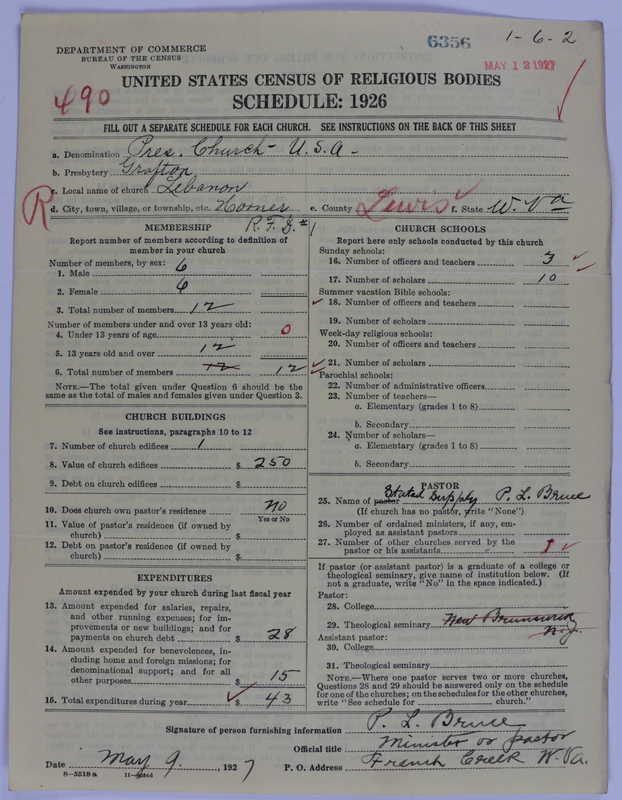 DEPARTMENT OF COMMERCE
BUREAU OF THE CENSUS
WASHINGTON
6356
1-6-2
MAY 12 1927
UNITED STATES CENSUS OF RELIGIOUS BODIES
490
SCHEDULE: 1926
FILL OUT A SEPARATE SCHEDULE FOR EACH CHURCH. SEE INSTRUCTIONS ON THE BACK OF THIS SHEET
a. Denomination Pres. Church - U.S.A -
b. Presbytery Grafton
c. Local name of church Lebanon
R d. City, town, village, or township, etc. Horner e. County Lewis f. State W. Va
R.F.D. #1
MEMBERSHIP
Report number of members according to definition of
member in your church
Number of members, by sex:
1. Male 6
2. Female 6
3. Total number of members 12
Number of members under and over 13 years old:
4. Under 13 years of age 0
5. 13 years old and over 12
6. Total number of members 12 12
NOTE.—The total given under Question 6 should be the
same as the total of males and females given under Question 3.
CHURCH BUILDINGS
See instructions, paragraphs 10 to 12
7. Number of church edifices 1
8. Value of church edifices $ 250
9. Debt on church edifices $
10. Does church own pastor's residence No
Yes or No
11. Value of pastor's residence (if owned by
church) $
12. Debt on pastor's residence (if owned by
church) $
EXPENDITURES
Amount expended by your church during last fiscal year
13. Amount expended for salaries, repairs,
and other running expenses; for im-
provements or new buildings; and for
payments on church debt $ 28
14. Amount expended for benevolences, in-
cluding home and foreign missions; for
denominational support; and for all
other purposes $ 15
15. Total expenditures during year $ 43
CHURCH SCHOOLS
Report here only schools conducted by this church
Sunday schools:
16. Number of officers and teachers 3
17. Number of scholars 10
Summer vacation Bible schools:
18. Number of officers and teachers
19. Number of scholars
Week-day religious schools:
20. Number of officers and teachers
21. Number of scholars
Parochial schools:
22. Number of administrative officers
23. Number of teachers—
a. Elementary (grades 1 to 8)
b. Secondary
24. Number of scholars—
a. Elementary (grades 1 to 8)
b. Secondary
PASTOR
25. Name of pastor Stated Supply P. L. Bruce
(If church has no pastor, write "None")
26. Number of ordained ministers, if any, em-
ployed as assistant pastors
27. Number of other churches served by the
pastor or his assistants 1
If pastor (or assistant pastor) is a graduate of a college or
theological seminary, give name of institution below. (If
not a graduate, write "No" in the space indicated.)
Pastor:
28. College
29. Theological seminary New Brunswick
N.J.
Assistant pastor:
30. College
31. Theological seminary
NOTE.—Where one pastor serves two or more churches,
Questions 28 and 29 should be answered only on the schedule
for one of the churches; on the schedules for the other churches,
write "See schedule for church."
Signature of person furnishing information P. L. Bruce
Official title Minister or pastor
Date May 9, 1927 P. O. Address French Creek W. Va.
8—5518a